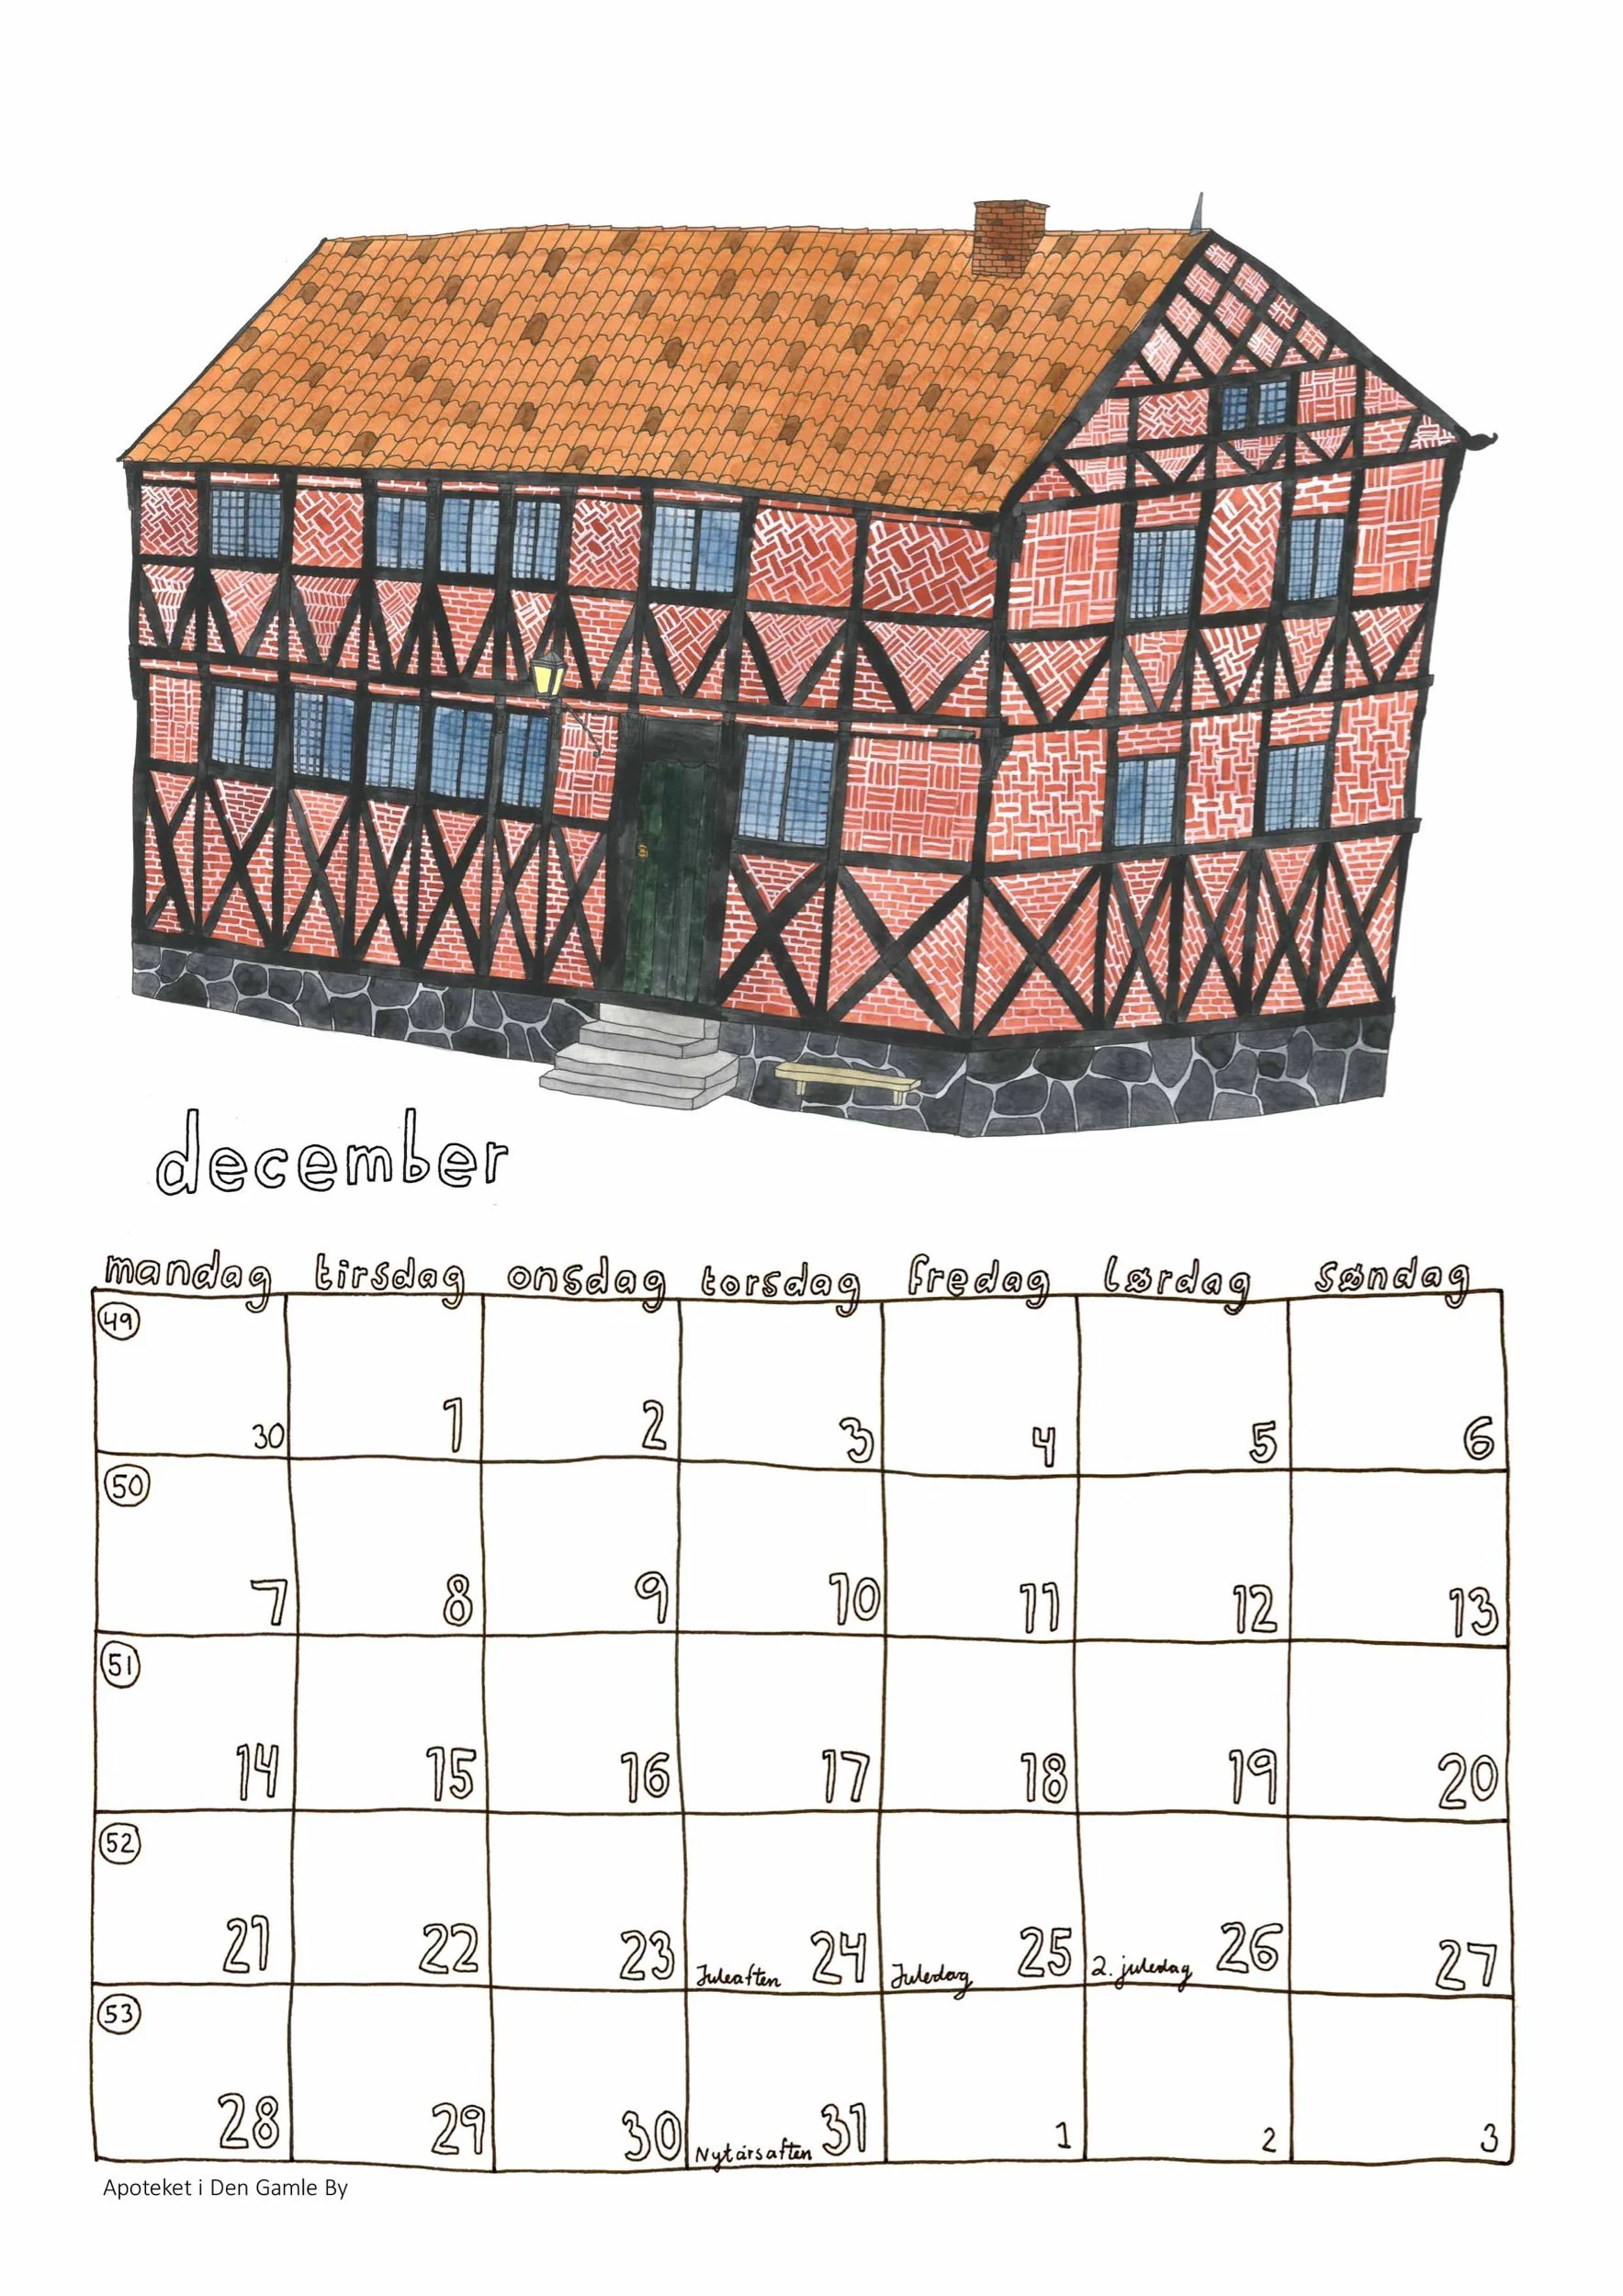 december
mandag tirsdag onsdag torsdag fredag lørdag søndag
49
30 1 2 3 4 5 6
50
7 8 9 10 11 12 13
51
14 15 16 17 18 19 20
52
21 22 23 Juleaften 24 Juledag 25 2. juledag 26 27
53
28 29 30 Nytårsaften 31 1 2 3
Apoteket i Den Gamle By